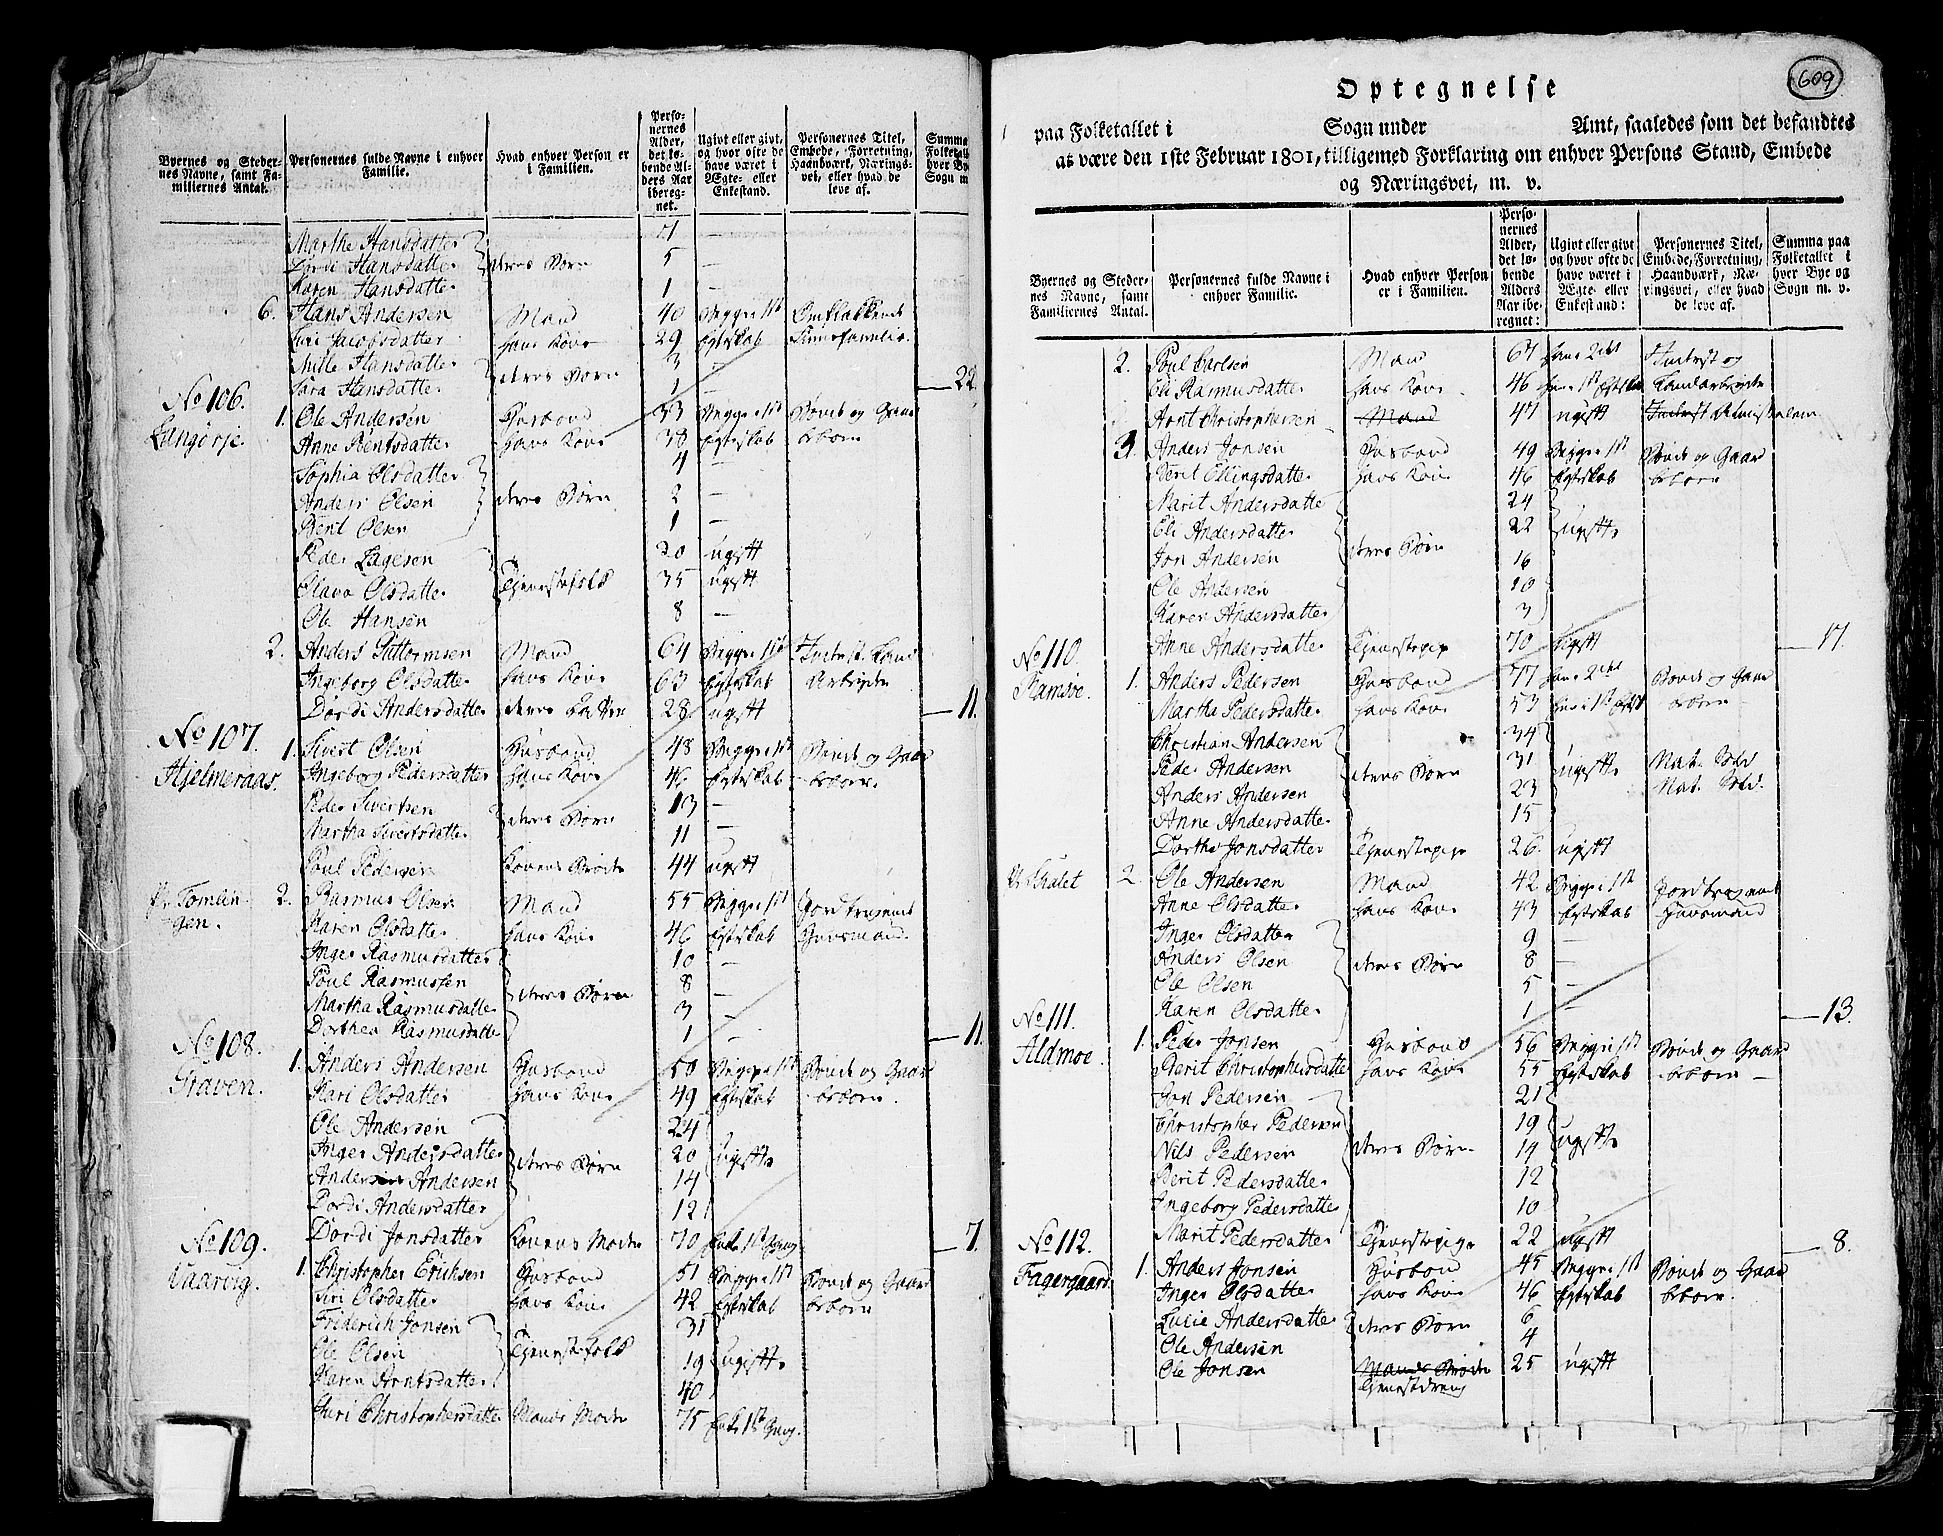 Byernes og Steder-
nes Navne, samt Fa-
miliernes Antal.
Personernes fulde Navne i enhver
Familie.
Hvad enhver Person er
i Familien.
Perso-
nernes
Alder,
det lø-
bende Al-
ders Aar
ibereg-
net.
Ugivt eller givt,
og hvor ofte de
have været i
Ægte- eller
Enkestand.
Personernes Titel,
Embede, Forretning,
Haandværk, Nærings-
vei, eller hvad de
leve af.
Summa
Folketall
hver By
Sogn m
Marthe Hansdatter 7 —
Hansdatter deres Børn 5 —
Karen Hansdatter 1 —
6. Hans Andersen Mand 40 Begge 1st Omflakkende
Siri Jacobsdatter hans Kone 29 Egteskab Finnefamilie.
Mille Hansdatter 3 —
Sara Hansdatter deres Børn 1 — 22.
No 106.
Langørje 1. Ole Andersen Husbond 33 Begge 1st Bonde og Gaard
Anne Bentsdatter hans Kone 38 Egteskab beboer
Sophia Olsdatter 4 —
Anders Olsen deres Børn 2 —
Bent Olsen 1 —
Peder Lagesen 20 ugift
Olava Olsdatter Tjenestefolk 35 ugift
Ole Hansen 8 —
2. Anders Guttormsen Mand 64 Begge 1st Inderst. Land
Ingeborg Olsdatter hans Kone 63 Egteskab Arbeyder
Dordi Andersdatter deres Datter 28 ugift 11.
No 107.
Hjelmeraas. 1. Sivert Olsen Husbond 48 Begge 1st Bonde og Gaard
Ingeborg Pedersdatter hans Kone 46 Egteskab beboer.
Peder Sivertsen 13 —
Martha Sivertsdatter deres Børn 11 —
Poul Pedersen Konens Broder 44 ugift
Pl. Tomlin-
gen. 2. Rasmus Olsen Mand 55 Begge 1st Jordbrugende
Karen Olsdatter hans Kone 46 Egteskab Huusmand.
Inger Rasmusdatter 10 —
Poul Rasmussen 8 —
Martha Rasmusdatter deres Børn 3 —
Dorthea Rasmusdatter 1 — 11.
No 108.
Staven. 1. Anders Andersen Husbond 50 Begge 1st Bonde og Gaard
Kari Olsdatter hans Kone 49 Egteskab beboer.
Ole Andersen 24
Inger Andersdatter 20 ugifte
Anders Andersen deres Børn 14
Dordi Andersdatter 12
Dordi Jonsdatter Konens Moder 70 Enke 1st Gang 7.
No 109.
Vaarvig. 1. Christopher Eriksen Husbond 51 Begge 1st Bonde og Gaard
Siri Olsdatter hans Kone 42 Egteskab beboer.
Friderich Jonsen 31
Ole Olsen Tjenestefolk 19 ugifte
Karen Arntsdatter 40
Guri Christophersdatter Mands Moder 75 Enke 1st Gang.
609
Optegnelse
paa Folketallet i Sogn under Amt, saaledes som det befandtes
at være den 1ste Februar 1801, tilligemed Forklaring om enhver Persons Stand, Embede
og Næringsvei, m. v.
Byernes og Steder-
nes Navne, samt
Familiernes Antal.
Personernes fulde Navne i
enhver Familie.
Hvad enhver Person
er i Familien.
Perso-
nernes
Alder,
det lø-
bende
Alders
Aar ibe-
regnet:
Ugivt eller givt
og hvor ofte de
have været i
Ægte- eller
Enkestand:
Personernes Titel,
Embede, Forretning,
Haandværk, Næ-
ringsvei, eller hvad
de leve af.
Summa paa
Folketallet i
hver Bye og
Sogn m. v.
2. Poul Carlsen Mand 67 han 2det Inderst og
Eli Rasmusdatter hans Kone 46 hun 1st Egtesk Landarbeyder
Arnt Christophersen Mand 47 ugift Inderst Almisselem
3. Anders Jonsen Husbond 49 Begge 1st Bonde og Gaard
Berit Ellingsdatter hans Kone 46 Egteskab beboer
Marit Andersdatter 24
Eli Andersdatter 22 ugifte
Jon Andersen deres Børn 16
Ole Andersen 10
Karen Andersdatter 3
Anne Andersdatter Tjenestepige 70 ugift 17.
No 110.
Ramsøe. 1. Anders Pedersen Husbond 77 han 2det Bonde og Gaard
Martha Pedersdatter hans Kone 53 hun i 1st Egtesk beboer.
Christian Andersen 34
Peder Andersen 31 ugifte Nat. Sold
Anders Andersen deres Børn 23 Nat. Sold.
Anne Andersdatter 15
Dorthe Jonsdatter Tjenestepige 26 ugift
2. Ole Andersen Mand 42 Begge 1st Jordbrugende
Anne Olsdatter hans Kone 43 Egteskab Huusmand
Inger Olsdatter 9 —
Anders Olsen deres Børn 8 —
Ole Olsen 5 —
Karen Olsdatter 1 — 13.
No 111.
Aldmoe. 1. Peder Jonsen Husbond 56 Begge 1st Bonde og Gaard
Berit Christophersdatter hans Kone 55 Egteskab beboer —
Jon Pedersen 21
Christopher Pedersen 19 ugifte
Nils Pedersen deres Børn 14
Berit Pedersdatter 12
Ingeborg Pedersdatter 10
Marit Pedersdatter Tjenestepige 22 ugift 8.
No 112.
Fagergaard. 1. Anders Jonsen Husbond 45 Begge 1st Bonde og Gaard
Inger Olsdatter hans Kone 46 Egteskab beboer.
Lucie Andersdatter deres Børn 6
Ole Andersen 4
Ole Jonsen Mands Broder 25 ugift
Tjenestedreng